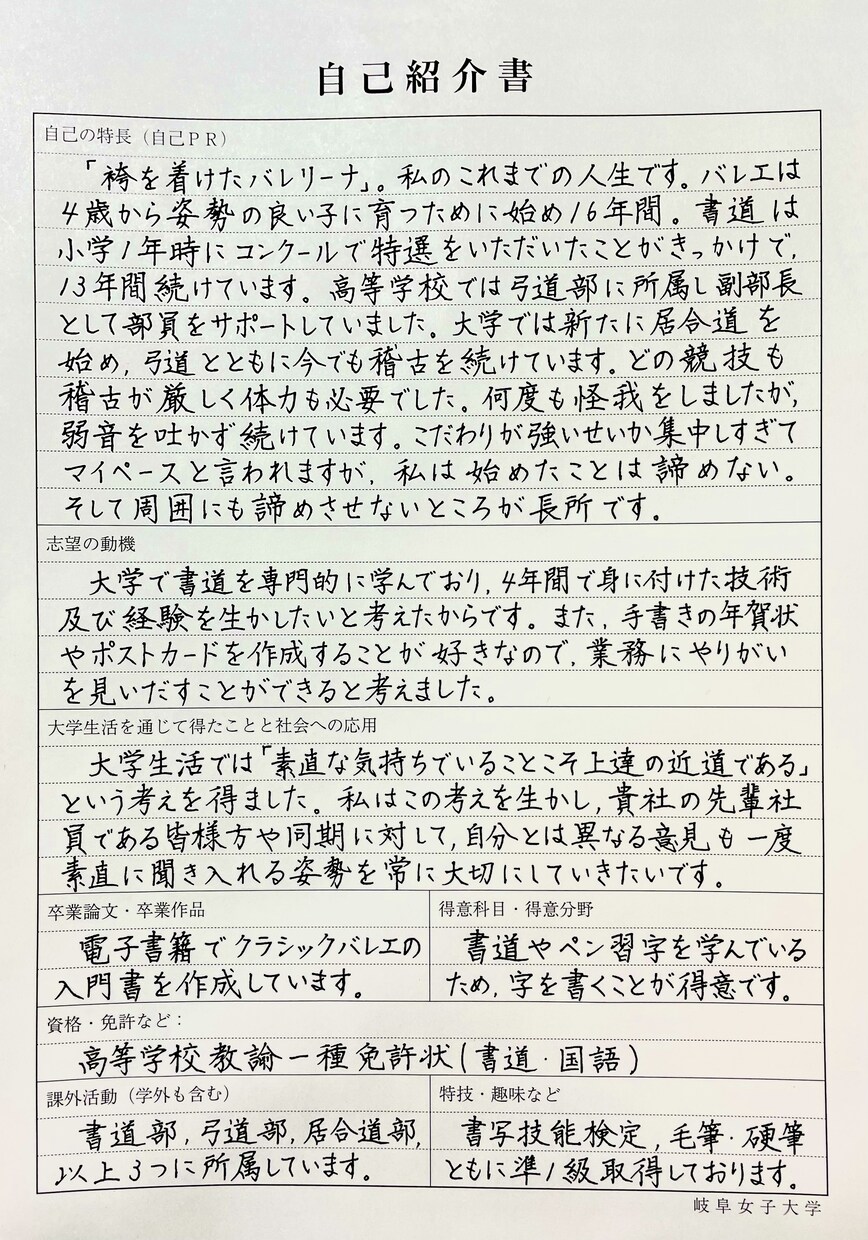 自己紹介書
自己の特長（自己PR）
「袴を着けたバレリーナ」。私のこれまでの人生です。バレエは
4歳から姿勢の良い子に育つために始め16年間。書道は
小学1年時にコンクールで特選をいただいたことがきっかけで,
13年間続けています。高等学校では弓道部に所属し副部長
として部員をサポートしていました。大学では新たに居合道を
始め,弓道とともに今でも稽古を続けています。どの競技も
稽古が厳しく体力も必要でした。何度も怪我をしましたが,
弱音を吐かず続けています。こだわりが強いせいか集中しすぎて
マイペースと言われますが,私は始めたことは諦めない。
そして周囲にも諦めさせないところが長所です。
志望の動機
大学で書道を専門的に学んでおり,4年間で身に付けた技術
及び経験を生かしたいと考えたからです。また,手書きの年賀状
やポストカードを作成することが好きなので,業務にやりがい
を見いだすことができると考えました。
大学生活を通じて得たことと社会への応用
大学生活では「素直な気持ちでいることこそ上達の近道である」
という考えを得ました。私はこの考えを生かし,貴社の先輩社
員である皆様方や同期に対して,自分とは異なる意見も一度
素直に聞き入れる姿勢を常に大切にしていきたいです。
卒業論文・卒業作品
電子書籍でクラシックバレエの
入門書を作成しています。
得意科目・得意分野
書道やペン習字を学んでいる
ため,字を書くことが得意です。
資格・免許など：
高等学校教諭一種免許状(書道・国語)
課外活動（学外も含む）
書道部,弓道部,居合道部,
以上3つに所属しています。
特技・趣味など
書写技能検定,毛筆・硬筆
ともに準1級取得しております。
岐阜女子大学